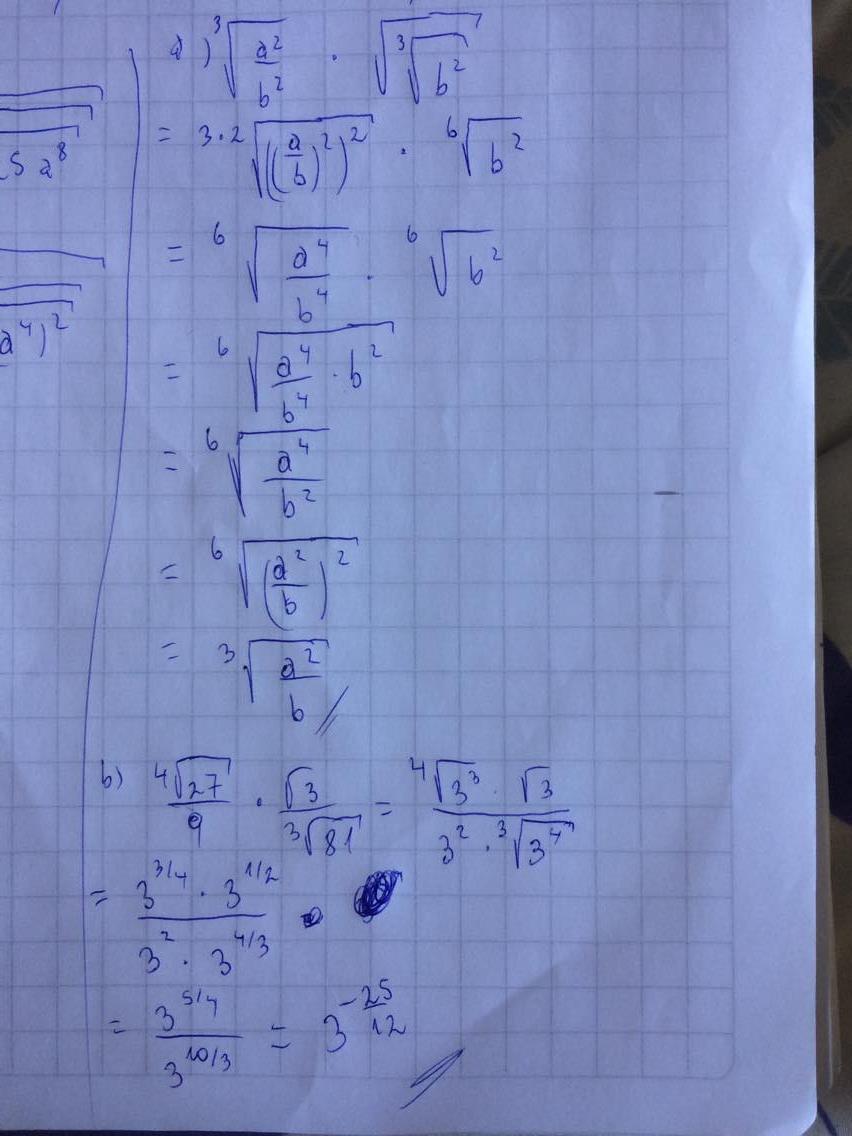 5 a⁸
a⁴)²
a) ³√(a²/b²) · √(³√(b²))
= ³·²√(((a/b)²)²) · ⁶√(b²)
= ⁶√(a⁴/b⁴) · ⁶√(b²)
= ⁶√(a⁴/b⁴ · b²)
= ⁶√(a⁴/b²)
= ⁶√((a²/b)²)
= ³√(a²/b) //
b) ⁴√27/9 · √3/³√81 = (⁴√(3³) · √3)/(3² · ³√(3⁴))
= (3^(3/4) · 3^(1/2))/(3² · 3^(4/3))
= 3^(5/4)/3^(10/3) = 3^(-25/12) //